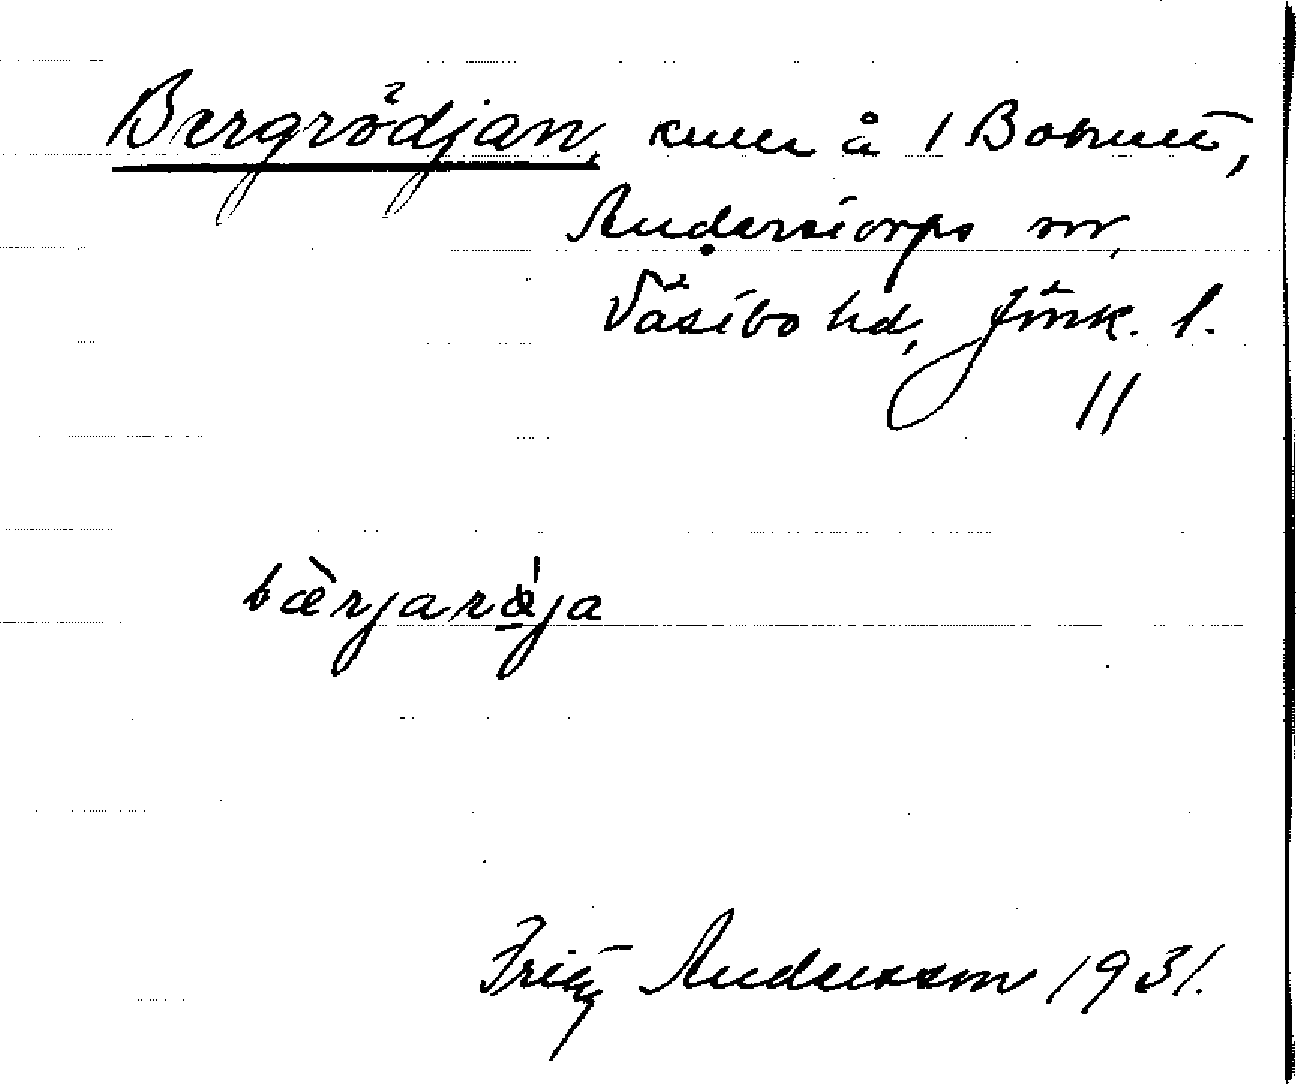 Bergrödjan, kulle å 1 Bohult,
Anderstorps sn,
Västbo hd, Jönk. l.
11
bærjarǿja
Fritz Andersson 1931.